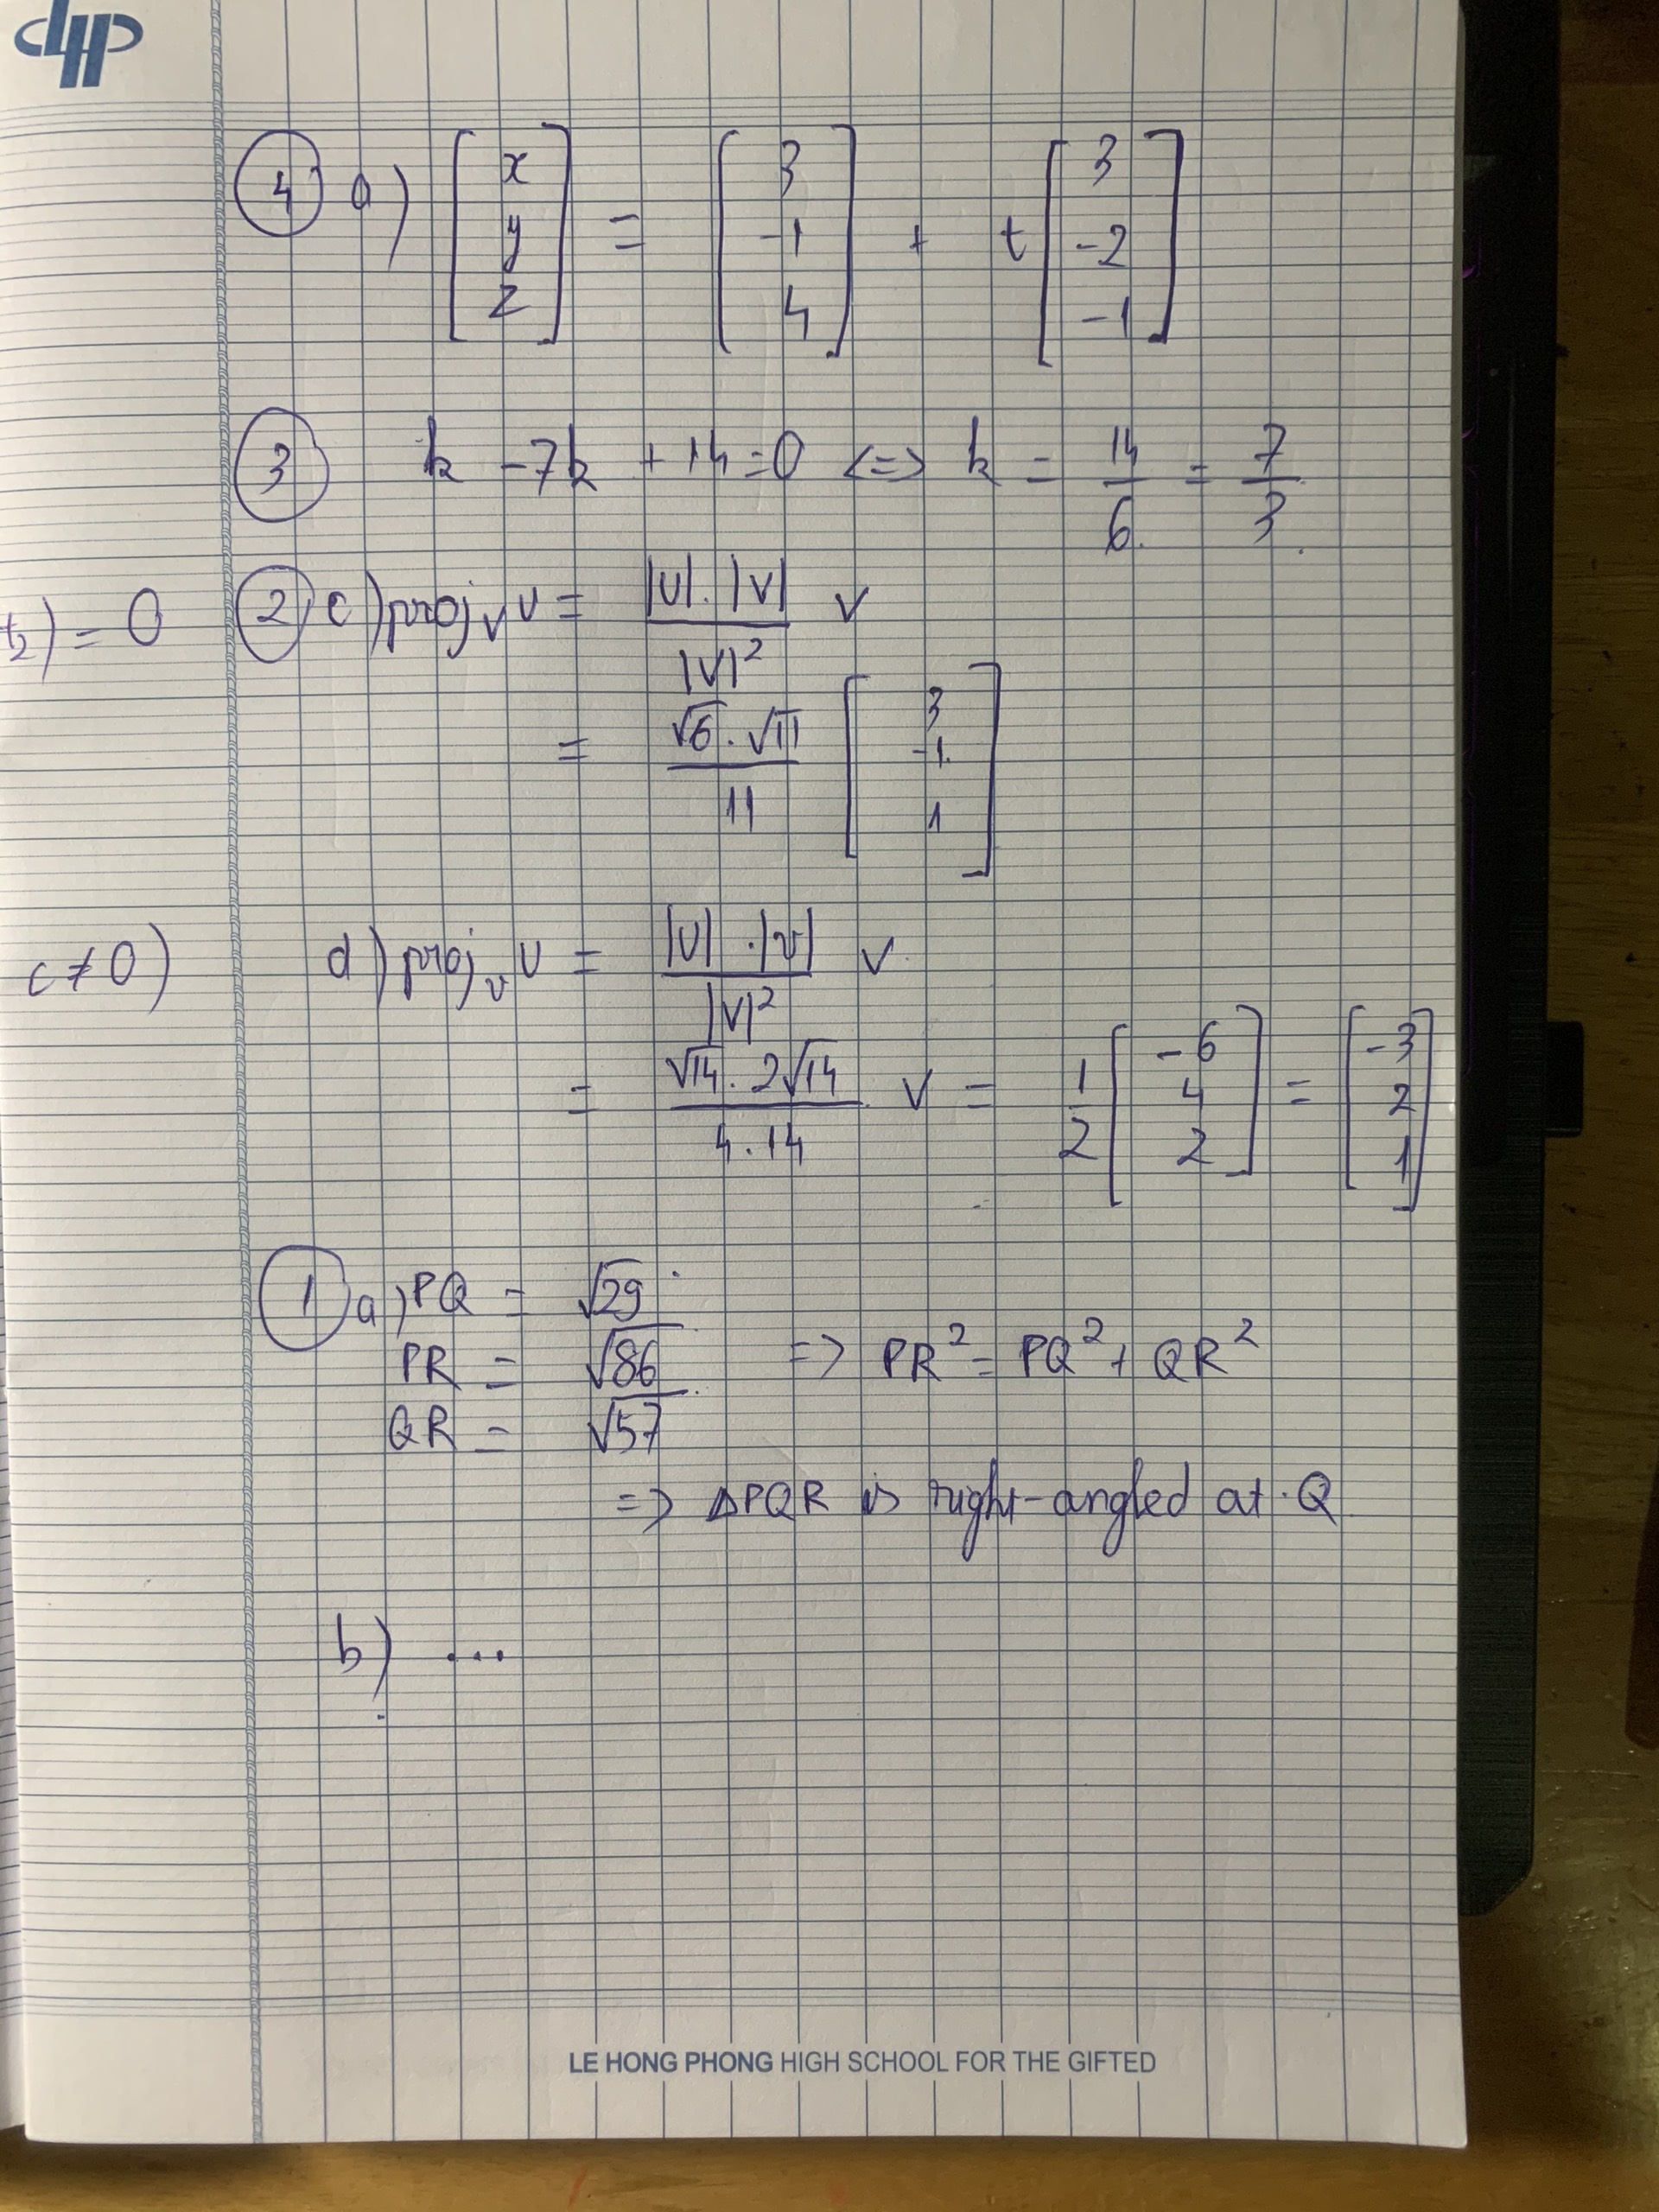 dHp
④ a) [x y z] = [3 -1 4] + t [3 -2 -1]
③ k - 7k + 14 = 0 <=> k = 14/6. = 7/3.
t₂) = 0
② c) proj_v u = |u|.|v| / |v|² v
= √6.√11 / 11 [3 -1. 1]
c ≠ 0)
d) proj_v u = |u|.|v| / |v|² v.
= √14.2√14 / 4.14 v = 1/2 [-6 4 2] = [-3 2 1]
① a) PQ = √29.
PR = √86 => PR² = PQ² + QR²
QR = √57
=> ΔPQR is right-angled at Q
b) ...
LE HONG PHONG HIGH SCHOOL FOR THE GIFTED